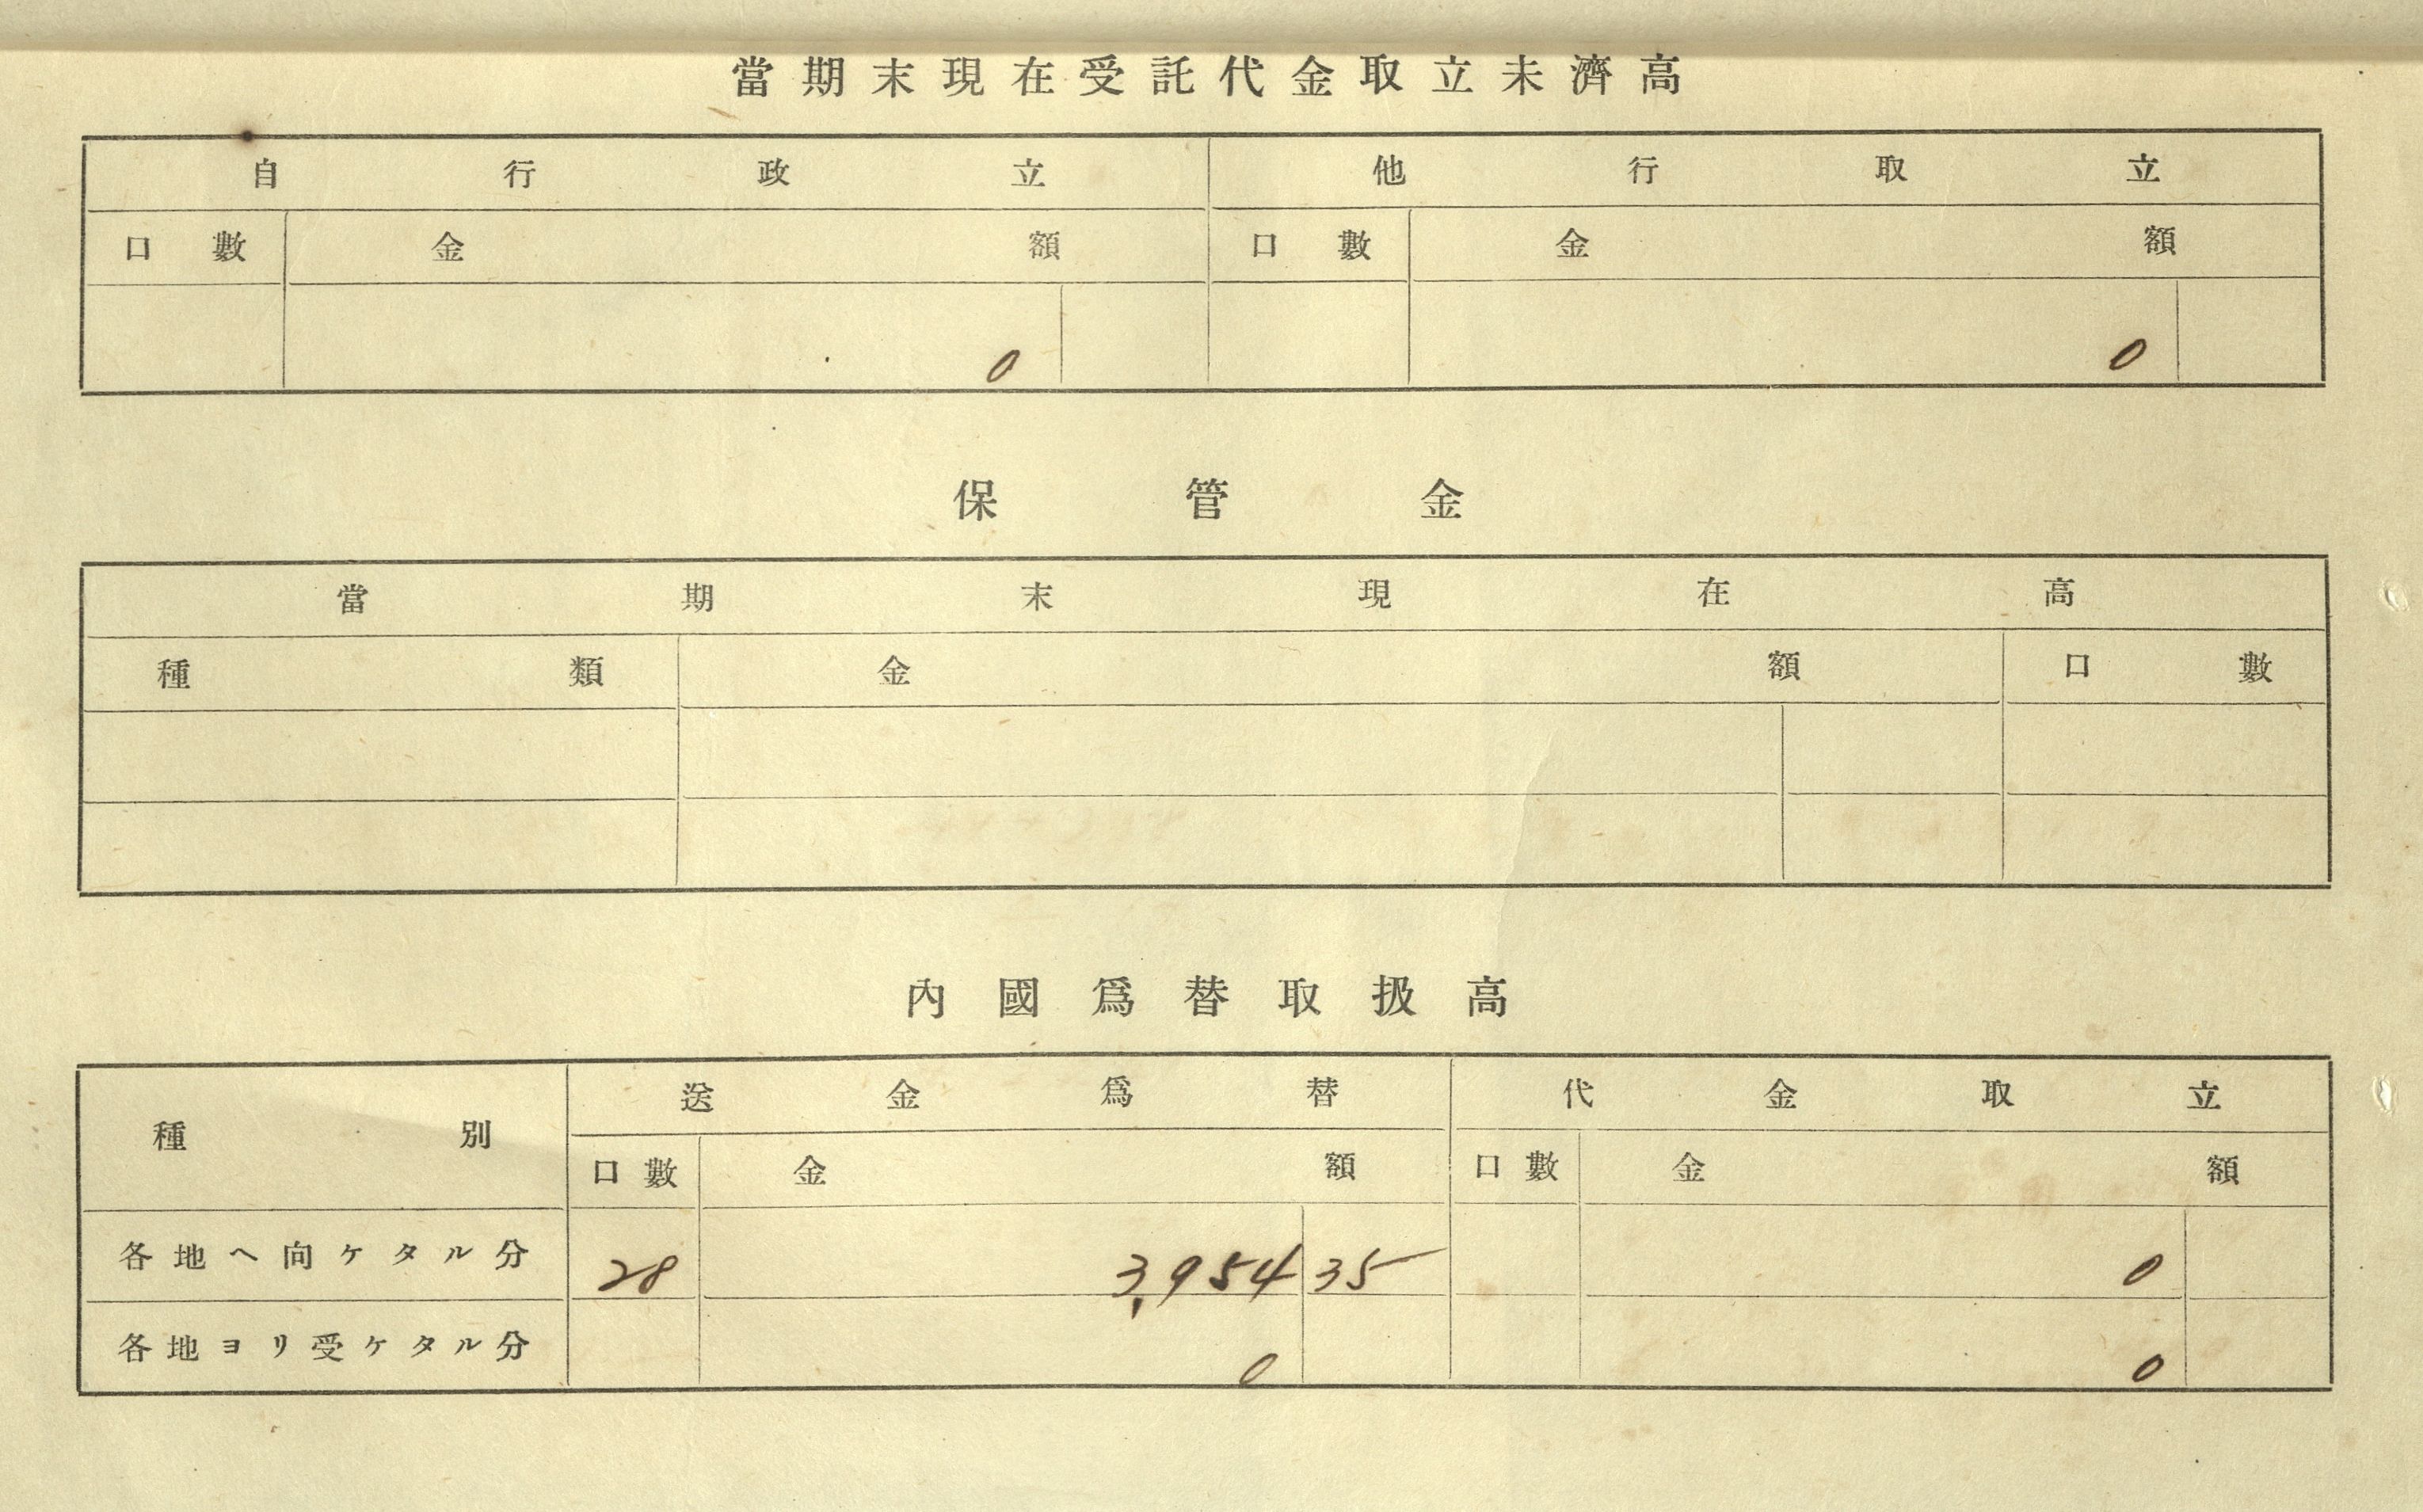 當期末現在受託代金取立未濟高
自行政立 他行取立
口數 金額 口數 金額
0 0
保管金
當期末現在高
種類 金額 口數
內國爲替取扱高
種別 送金爲替 代金取立
口數 金額 口數 金額
各地ヘ向ケタル分 28 3,954 35 0
各地ヨリ受ケタル分 0 0